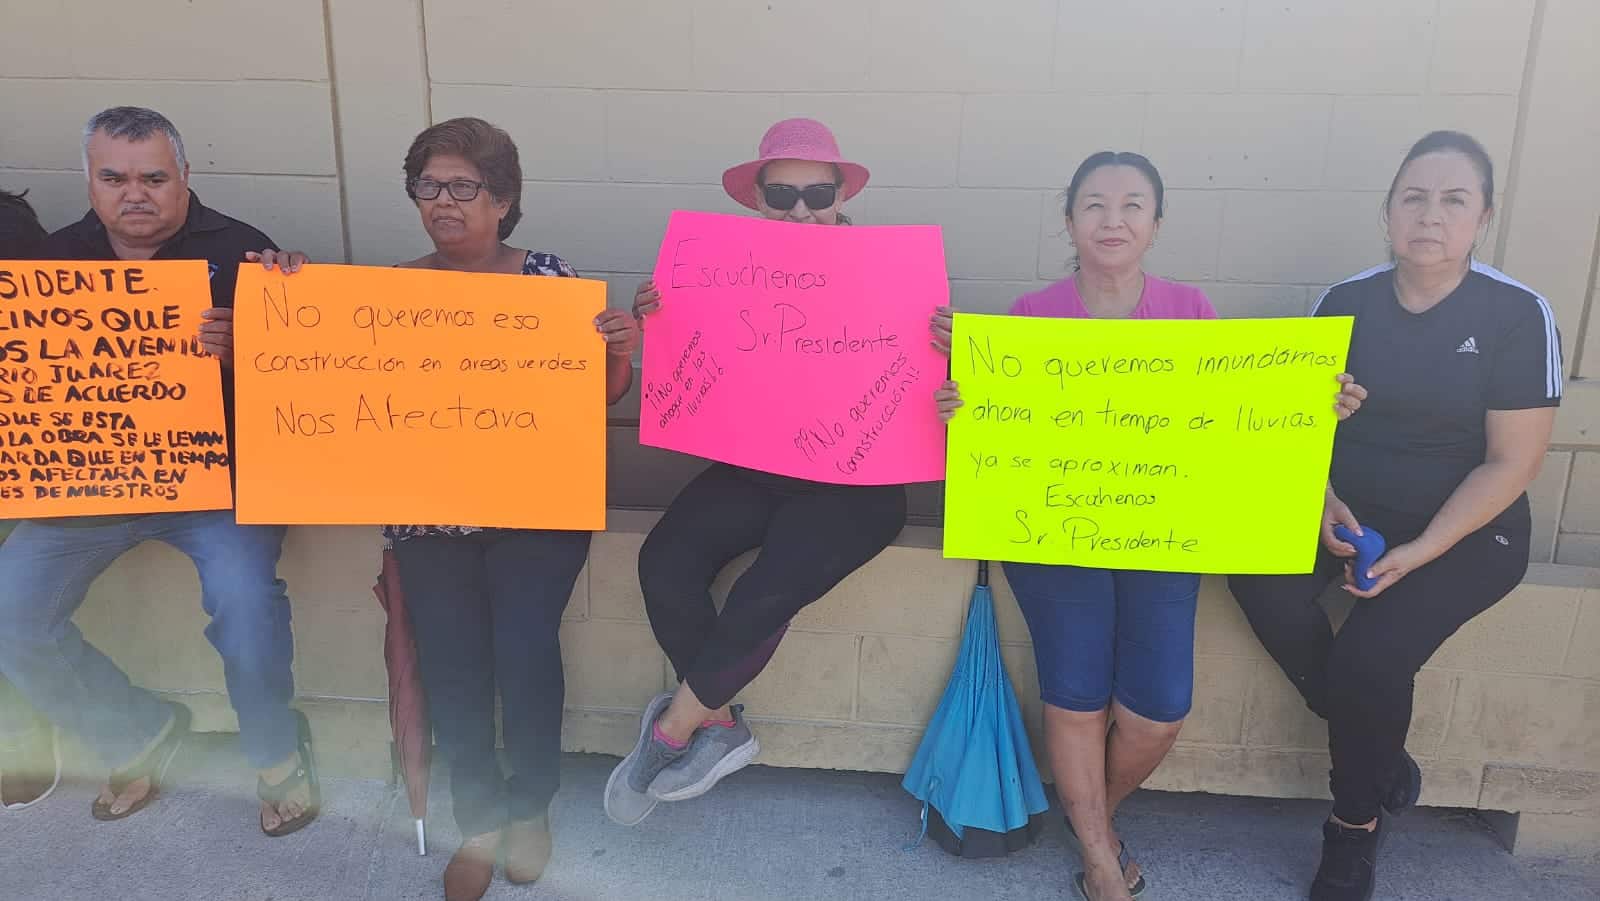 SIDENTE.
CINOS QUE
OS LA AVENID
RIO JUAREZ
S DE ACUERDO
QUE SE ESTA
LA OBRA SE LE LEVAN
ARDA QUE EN TIEMPO
OS AFECTARA EN
ES DE NUESTROS
No queremos esa
construcción en areas verdes
Nos Afectara
Escuchenos
Sr. Presidente
¡¡No queremos
ahogar en las
lluvias!!
¡¡No queremos
Connstrucción!!
No queremos innundarnos
ahora en tiempo de lluvias.
ya se aproximan.
Escuchenos
Sr. Presidente
adidas